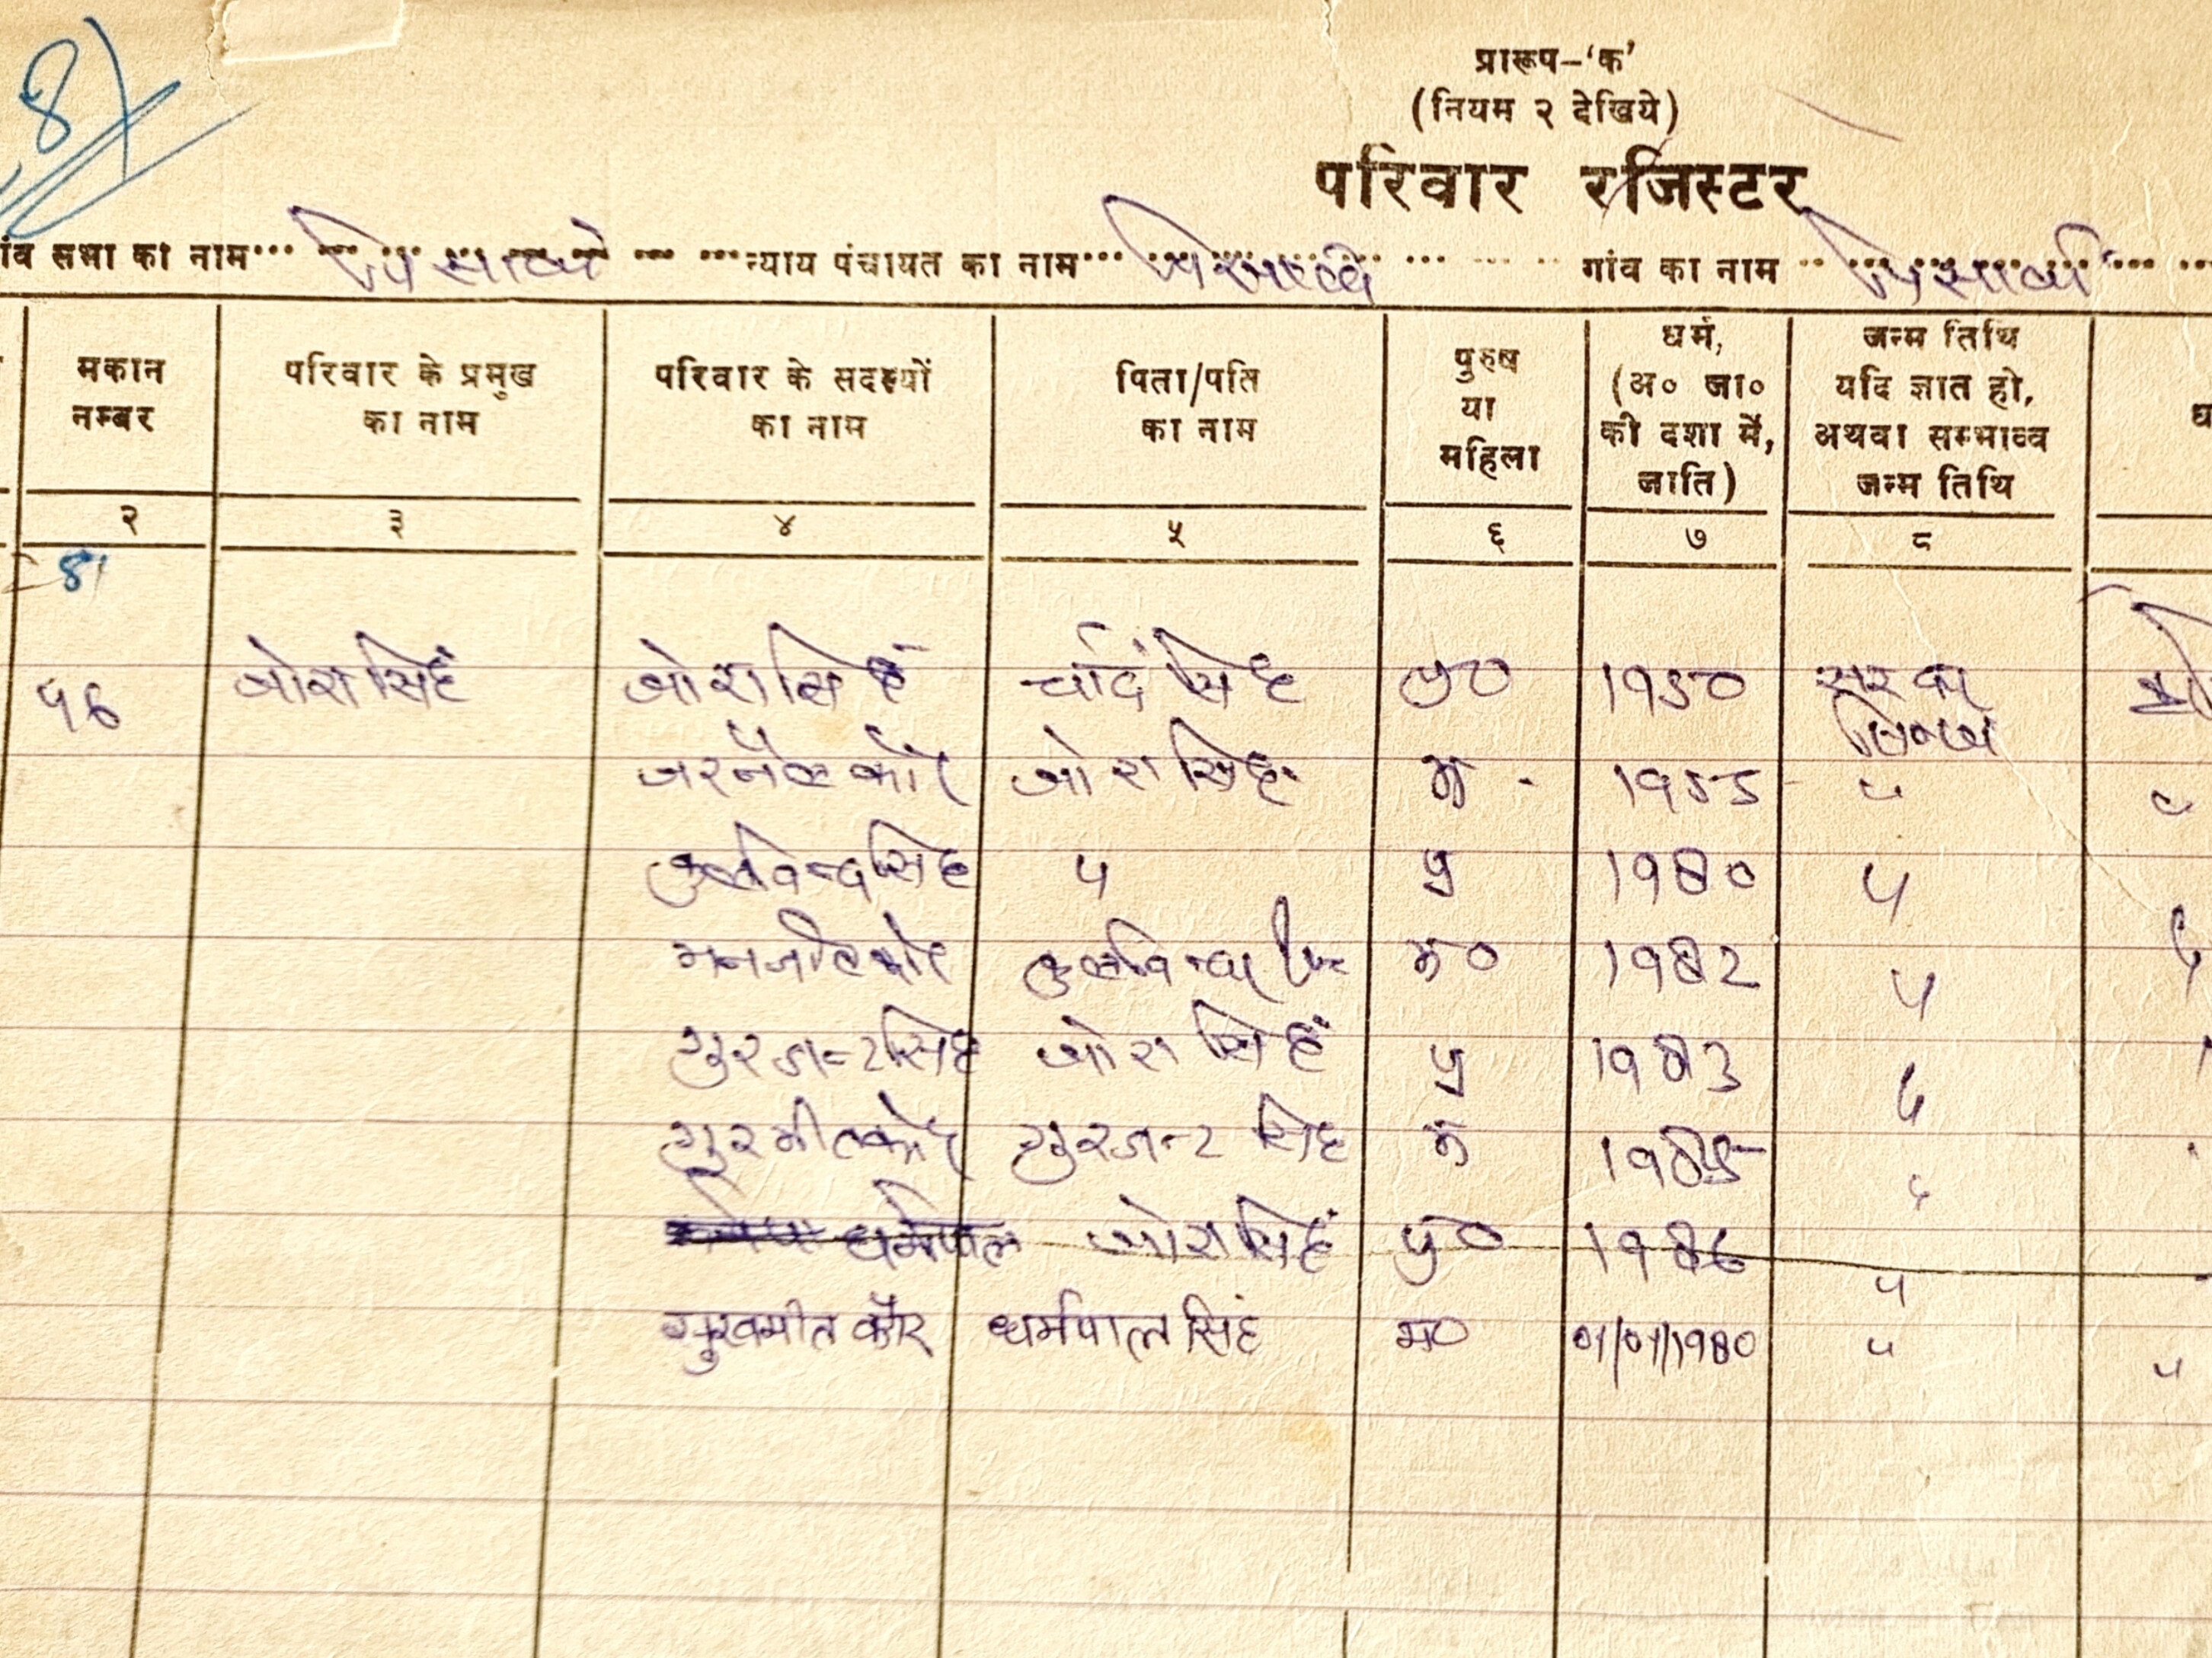 8
प्रारूप-'क'
(नियम २ देखिये)
परिवार रजिस्टर
गांव सभा का नाम न्याय पंचायत का नाम गांव का नाम
मकान नम्बर परिवार के प्रमुख का नाम परिवार के सदस्यों का नाम पिता/पति का नाम पुरुष या महिला धर्म, (अ० जा० की दशा में, जाति) जन्म तिथि यदि ज्ञात हो, अथवा सम्भाव्य जन्म तिथि
२ ३ ४ ५ ६ ७ ८
81
५६ जोरा सिहं जोरा सिहं चांद सिंह पु० 1950
जरनैल कौर जोरा सिंह म 1955 "
कुलविन्द्र सिंह " पु 1980 "
मनजीत कौर कुलविन्दर म० 1982 "
गुरजन्ट सिंह जोरा सिहं पु 1983 "
गुरमीत कौर गुरजन्ट सिंह म 1985 "
धर्मपाल जोरा सिहं पु० 1986 "
सुखमीत कौर धर्मपाल सिंह म० 01/01/1980 " "